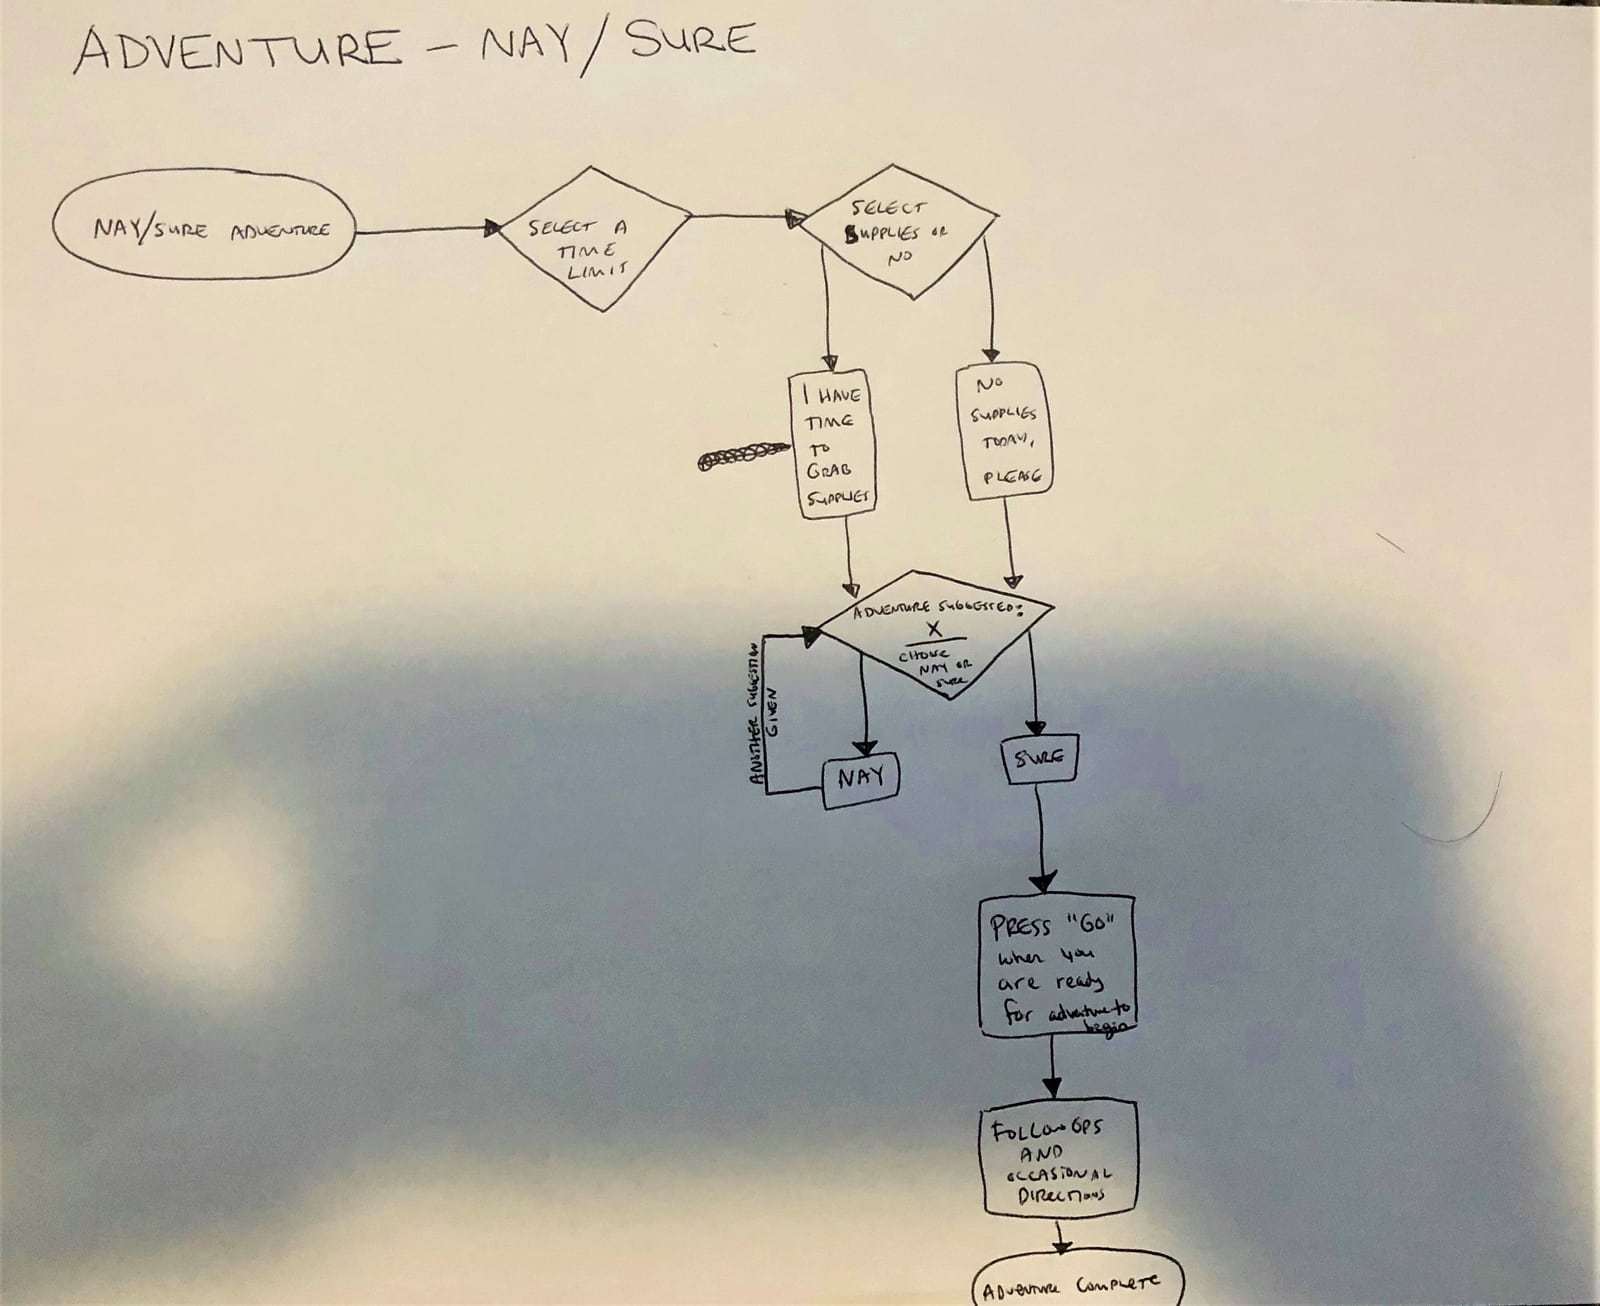 ADVENTURE - NAY/SURE
NAY/SURE ADVENTURE
SELECT A
TIME
LIMIT
SELECT
SUPPLIES OR
NO
I HAVE
TIME
TO
GRAB
SUPPLIES
NO
SUPPLIES
TODAY,
PLEASE
ADVENTURE SUGGESTED:
X
CHOOSE
NAY OR
SURE
ANOTHER SUGGESTION
GIVEN
NAY
SURE
PRESS "GO"
when you
are ready
for adventure to
begin
FOLLOW GPS
AND
OCCASIONAL
DIRECTIONS
ADVENTURE COMPLETE